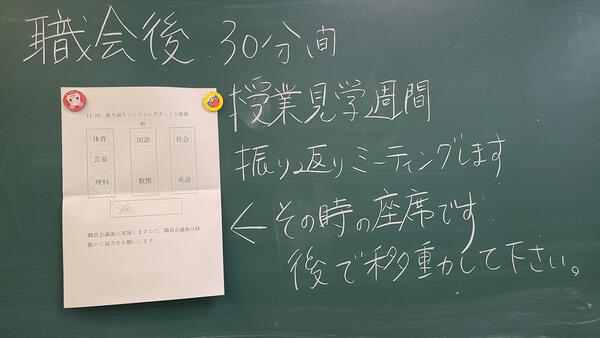 職会後 30分間
授業見学週間
振り返りミーティングします
← その時の座席です
後で移動して下さい。
11/16 振り返りミーティングざっくり座席
前
体育 国語 社会
芸家
理科 数情 英語
職員会議後に実施しますので、職員会議後は移
動のご協力をお願いします。